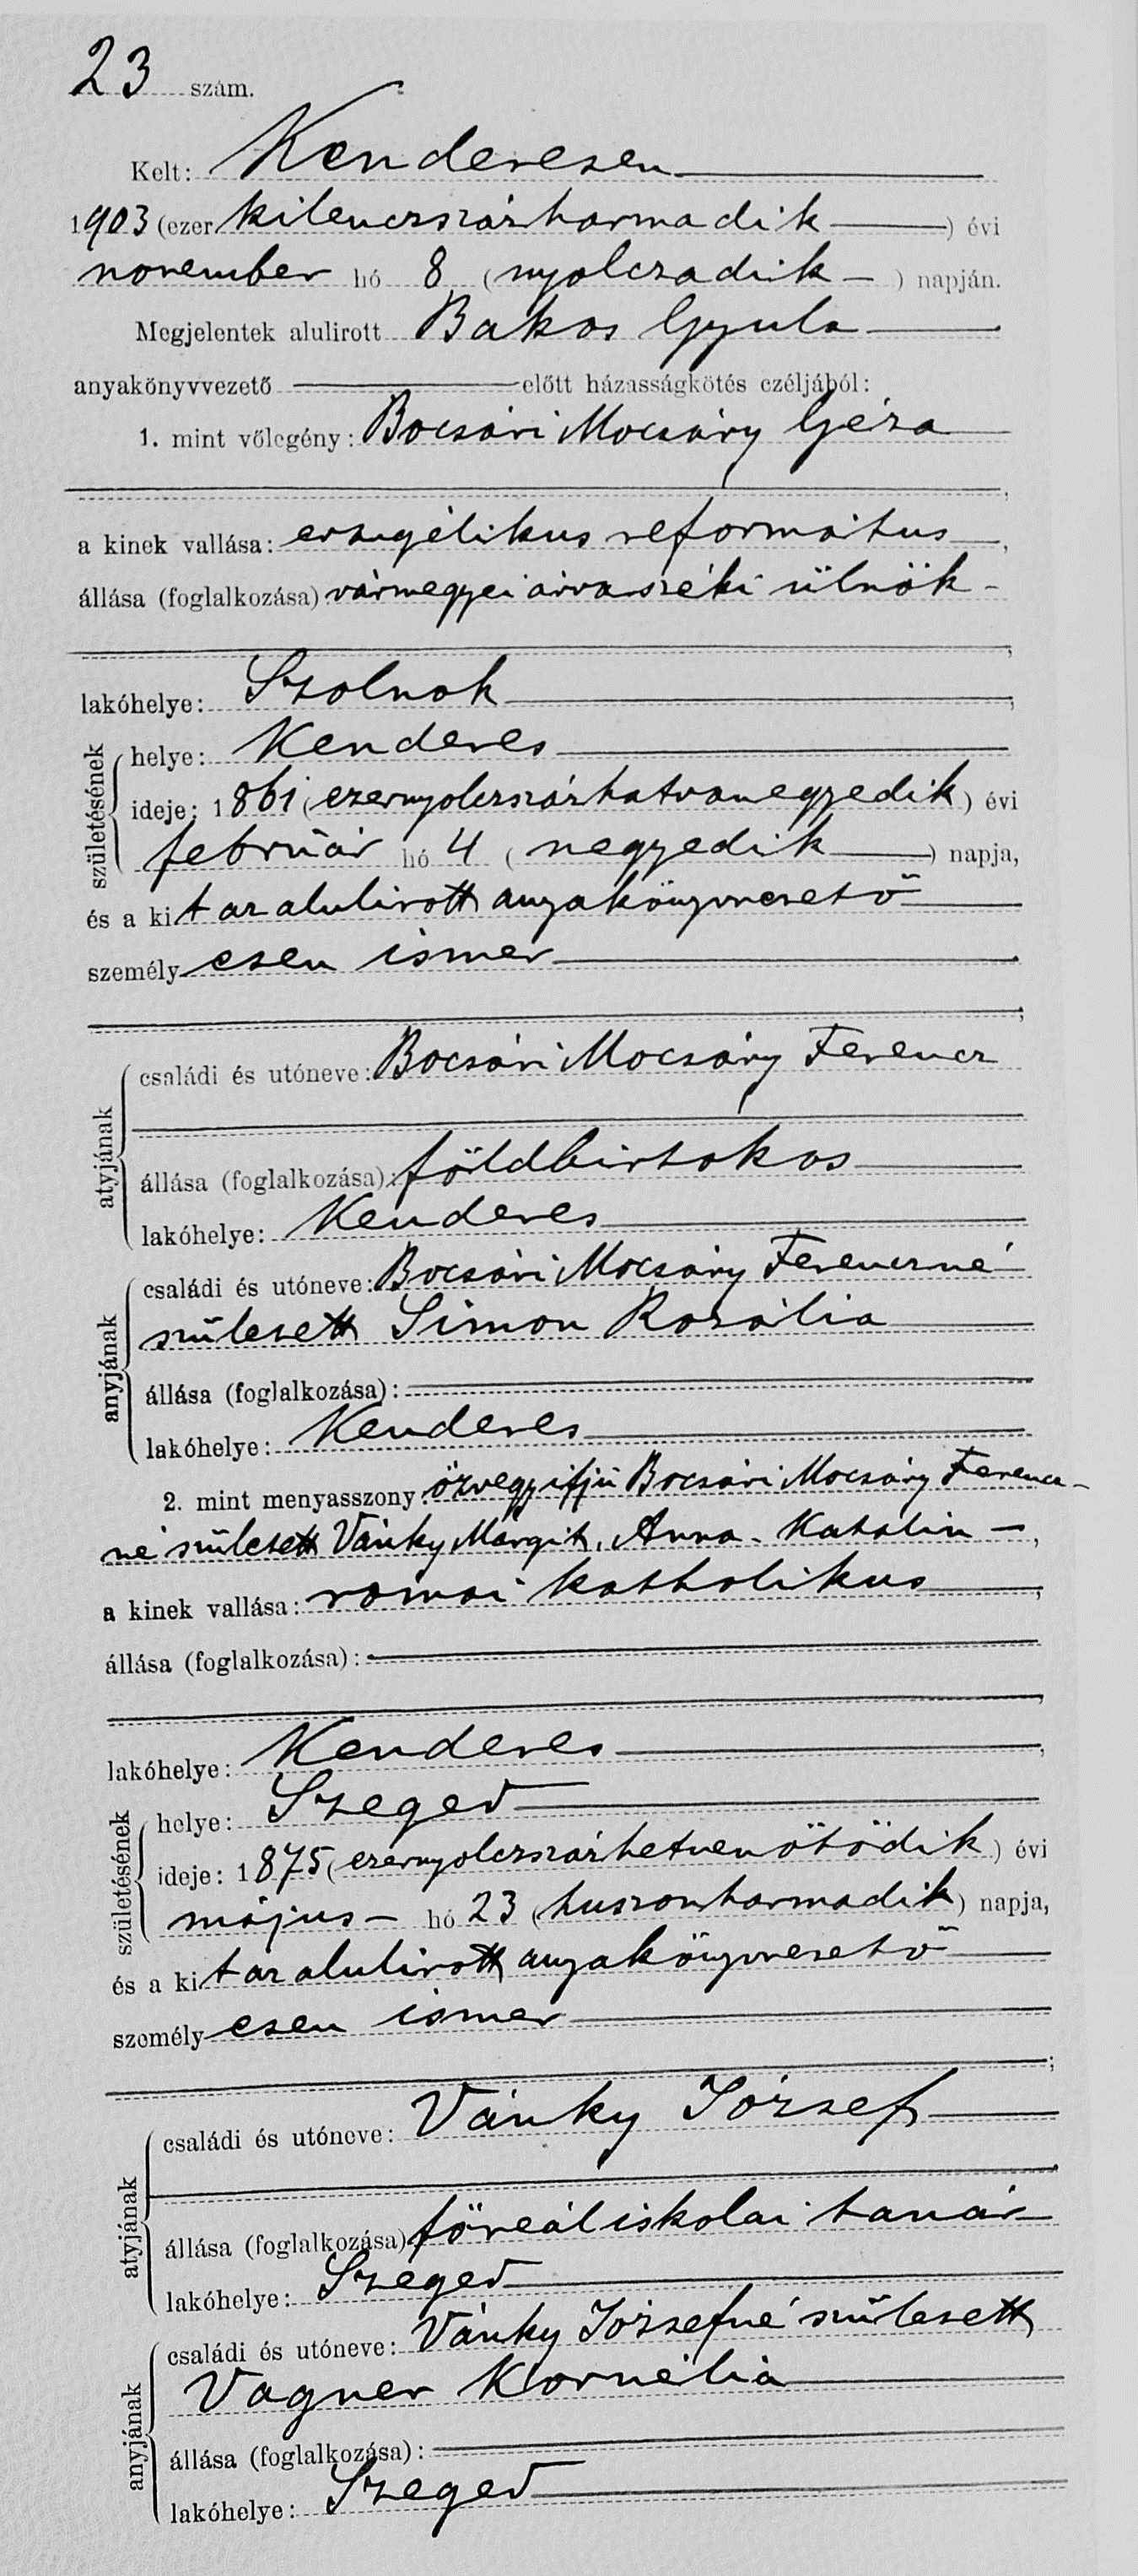 23 szám.
Kelt: Kenderesen
1903 (ezer kilenczszázharmadik) évi
november hó 8 (nyolczadik) napján.
Megjelentek alulirott Bakos Gyula
anyakönyvvezető előtt házasságkötés czéljából:
1. mint vőlegény: Bocsári Mocsáry Géza
a kinek vallása: evangélikus református,
állása (foglalkozása) vármegyei árvaszéki ülnök
lakóhelye: Szolnok,
születésének
helye: Kenderes
ideje: 1861 (ezernyolczszázhatvanegyedik) évi
február hó 4 (negyedik) napja,
és a kit az alulirott anyakönyvvezető
személyesen ismer
atyjának
családi és utóneve: Bocsári Mocsáry Ferencz
állása (foglalkozása): földbirtokos
lakóhelye: Kenderes
anyjának
családi és utóneve: Bocsári Mocsáry Ferenczné
született Simon Rozália
állása (foglalkozása):
lakóhelye: Kenderes
2. mint menyasszony: özvegy ifjú Bocsári Mocsáry Ferencz-
né született Vánky Margit, Anna, Katalin,
a kinek vallása: római katholikus,
állása (foglalkozása):
lakóhelye: Kenderes,
születésének
helye: Szeged
ideje: 1875 (ezernyolczszázhetvenötödik) évi
május hó 23 (huszonharmadik) napja,
és a kit az alulirott anyakönyvvezető
személyesen ismer
atyjának
családi és utóneve: Vánky József
állása (foglalkozása) főreáliskolai tanár
lakóhelye: Szeged
anyjának
családi és utóneve: Vánky Józsefné született
Vagner Kornélia
állása (foglalkozása):
lakóhelye: Szeged